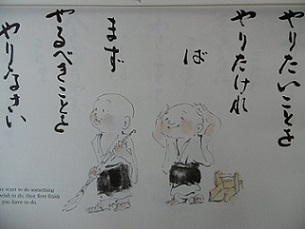 やりたいことを
やりたけれ
ば
まず
やるべきことを
やりなさい
want to do something
wish to do, then first finish
you have to do.